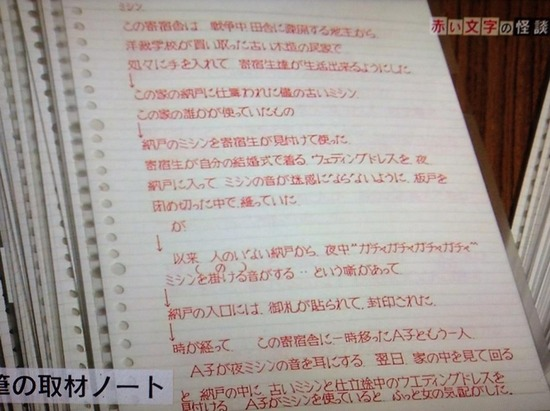 ミシン
赤い文字の怪談
この寄宿舎は、戦争中 田舎に疎開する地主から、
洋裁学校が買い取った古い木造の民家で
処々に手を入れて 寄宿生達が生活出来るようにした
↓
この家の納戸に仕舞われた儘の古いミシン
この家の誰かが使っていたもの
↓
納戸のミシンを寄宿生が見付けて使った
寄宿生が自分の結婚式で着る ウェディングドレスを 夜
納戸に入って ミシンの音が迷惑にならないように、板戸を
閉め切った中で、縫っていた
が
→ 以来 人のいない納戸から、夜中“ガチャガチャガチャガチャ”
(の)
ミシンを掛ける音がする‥という噂があって
↓
納戸の入口には、御札が貼られて、封印された。
↓
時が経って この寄宿舎に一時移ったA子ともう一人
A子が夜ミシンの音を耳にする 翌日、家の中を見て回る
と 納戸の中に、古いミシンと仕立途中のウエディングドレスを
見付ける A子がミシンを使っていると ふっと女の気配がした。
筆の取材ノート